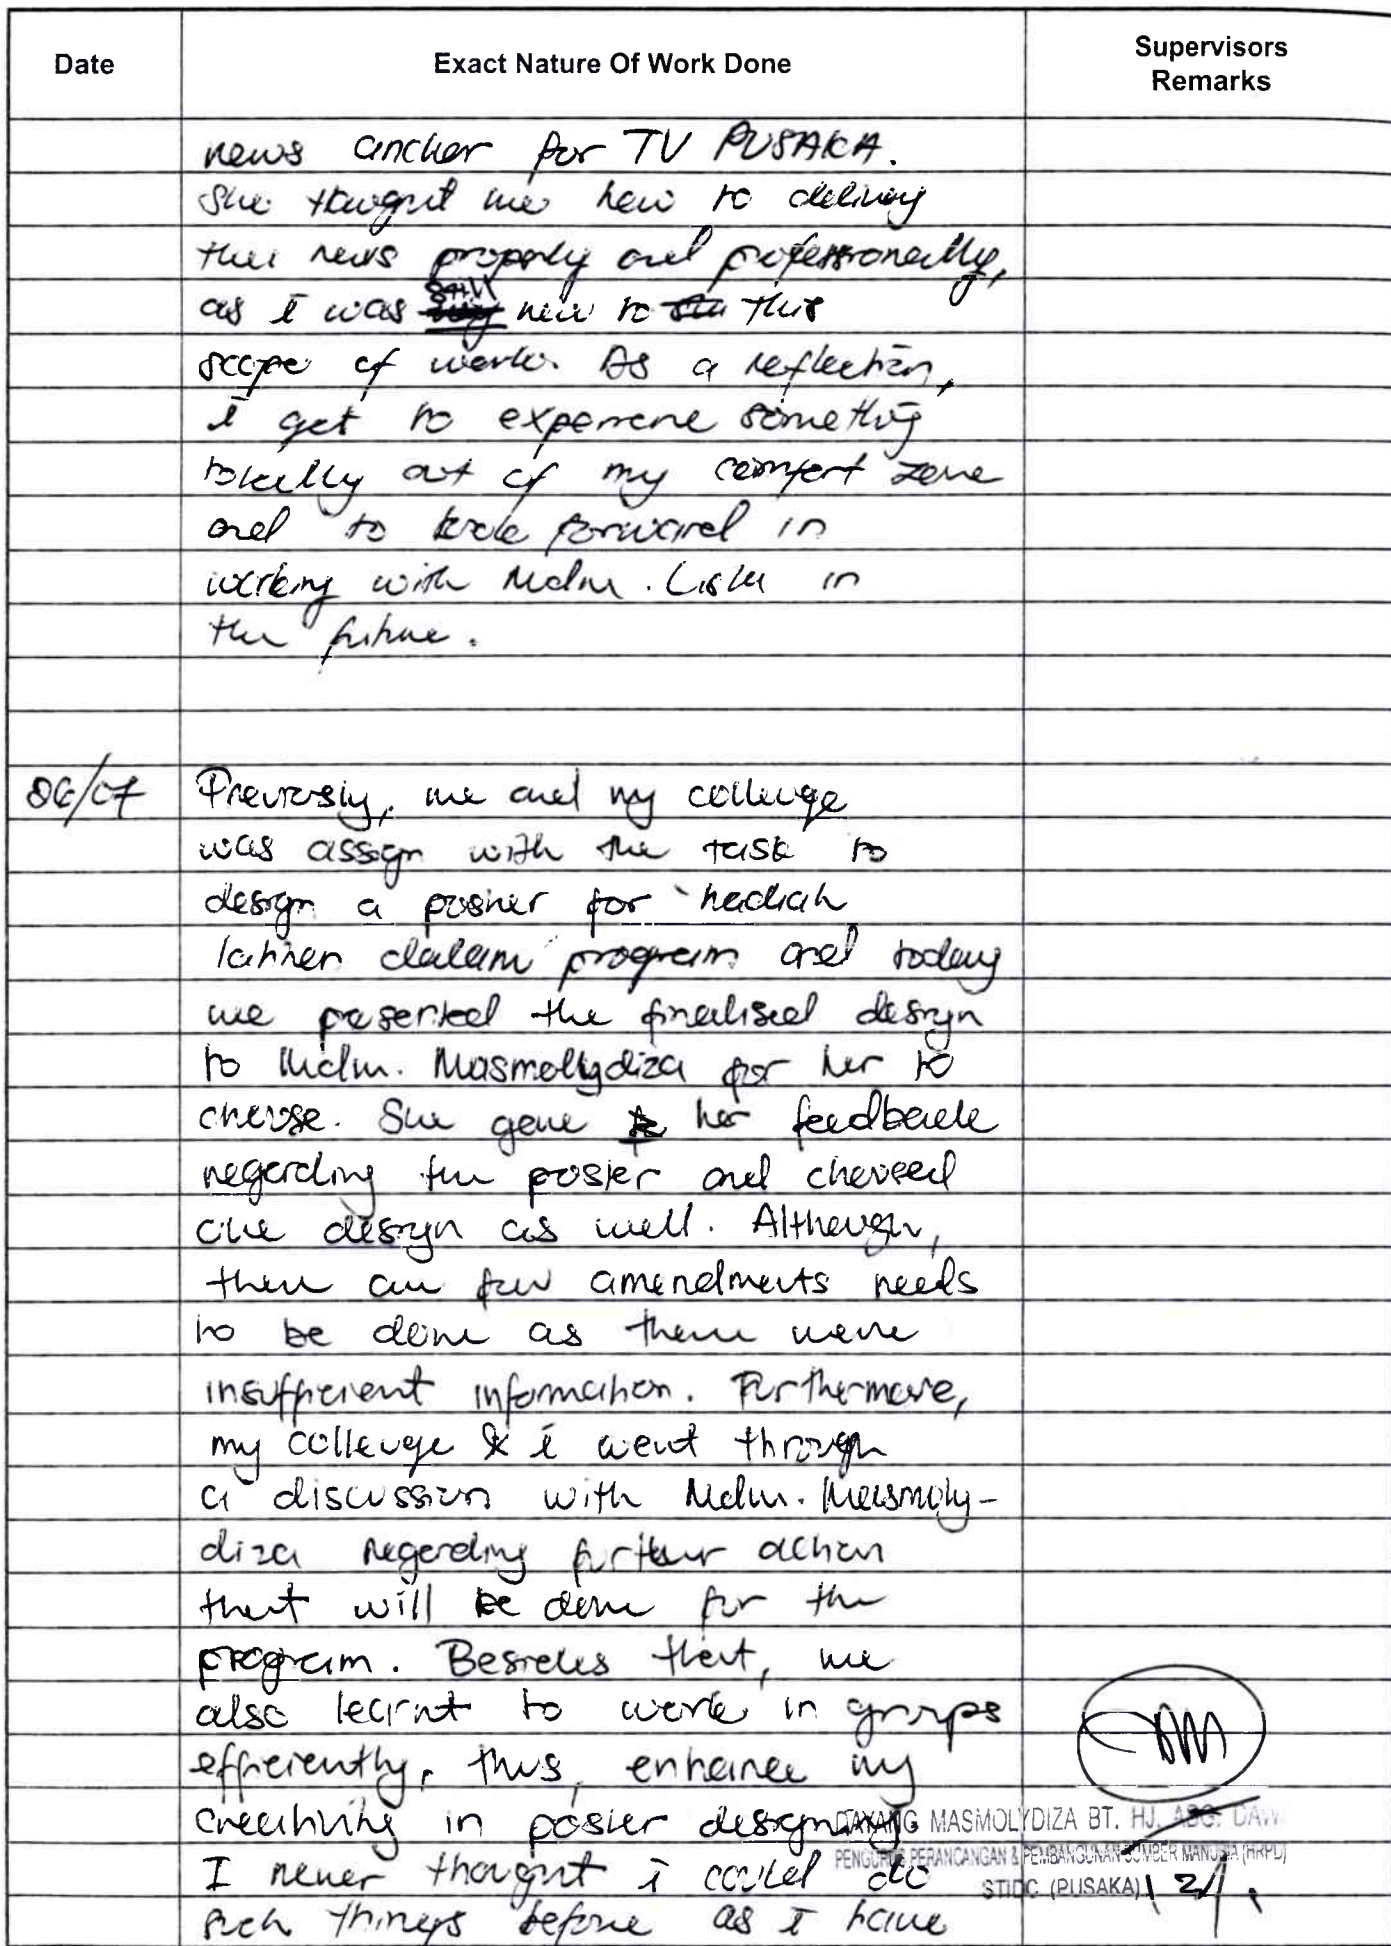 Date
Exact Nature Of Work Done
Supervisors
Remarks
news anchor for TV PUSAKA.
She thought me how to delivery
the news properly and professionally,
as i was still new to this
scope of work. As a reflection,
i get to experience something
totally out of my comfort zone
and to look forward in
working with Mdm. in
the future.
06/07
Previously, me and my colleuge
was assign with the task to
design a poster for 'hadiah
latihan dalam' program and today
we presented the finalised design
to Mdm. Masmollydiza for her to
choose. She gave her feedback
regarding the poster and choosed
one design as well. Although,
there are few amendments needs
to be done as there were
insufficient information. Furthermore,
my colleuge & i went through
a discussion with Mdm. Masmoly-
diza regarding further action
that will be done for the
program. Besides that, we
also learnt to work in groups
efficiently, thus, enhance my
creativity in poster designing.
I never thought i could do
such things before as I have
DAYANG MASMOLYDIZA BT. HJ. ABG. DAW
PENGURUS PERANCANGAN & PEMBANGUNAN SUMBER MANUSIA (HRPD)
STIDC (PUSAKA)